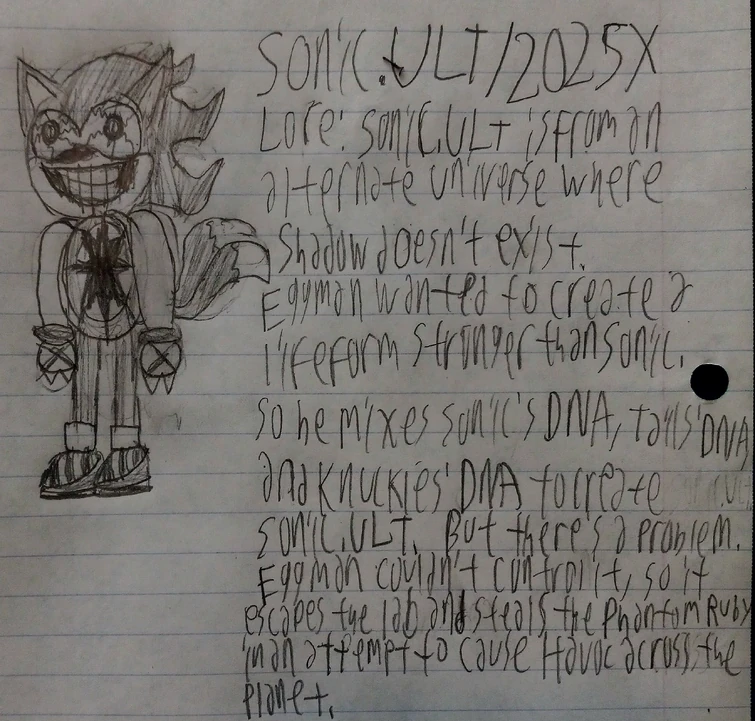 Sonic.ULT/2025X
Lore: Sonic.ULT is from an
alternate universe where
Shadow doesn't exist.
Eggman wanted to create a
lifeform stronger than Sonic.
So he mixes Sonic's DNA, Tails' DNA,
and Knuckles' DNA to create
Sonic.ULT. But there's a problem.
Eggman couldn't control it, so it
escapes the lab and steals the Phantom Ruby
in an attempt to cause Havoc across the
planet.